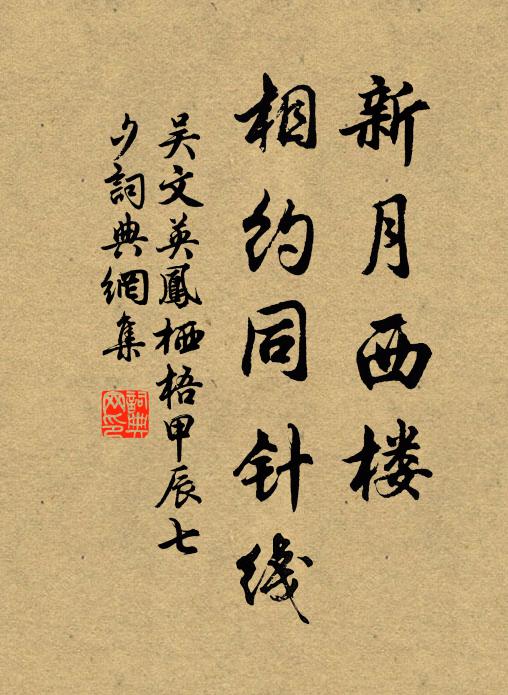 新月西楼
相约同针线
吴文英鳳栖梧甲辰七
夕詞典網集
詞典网印